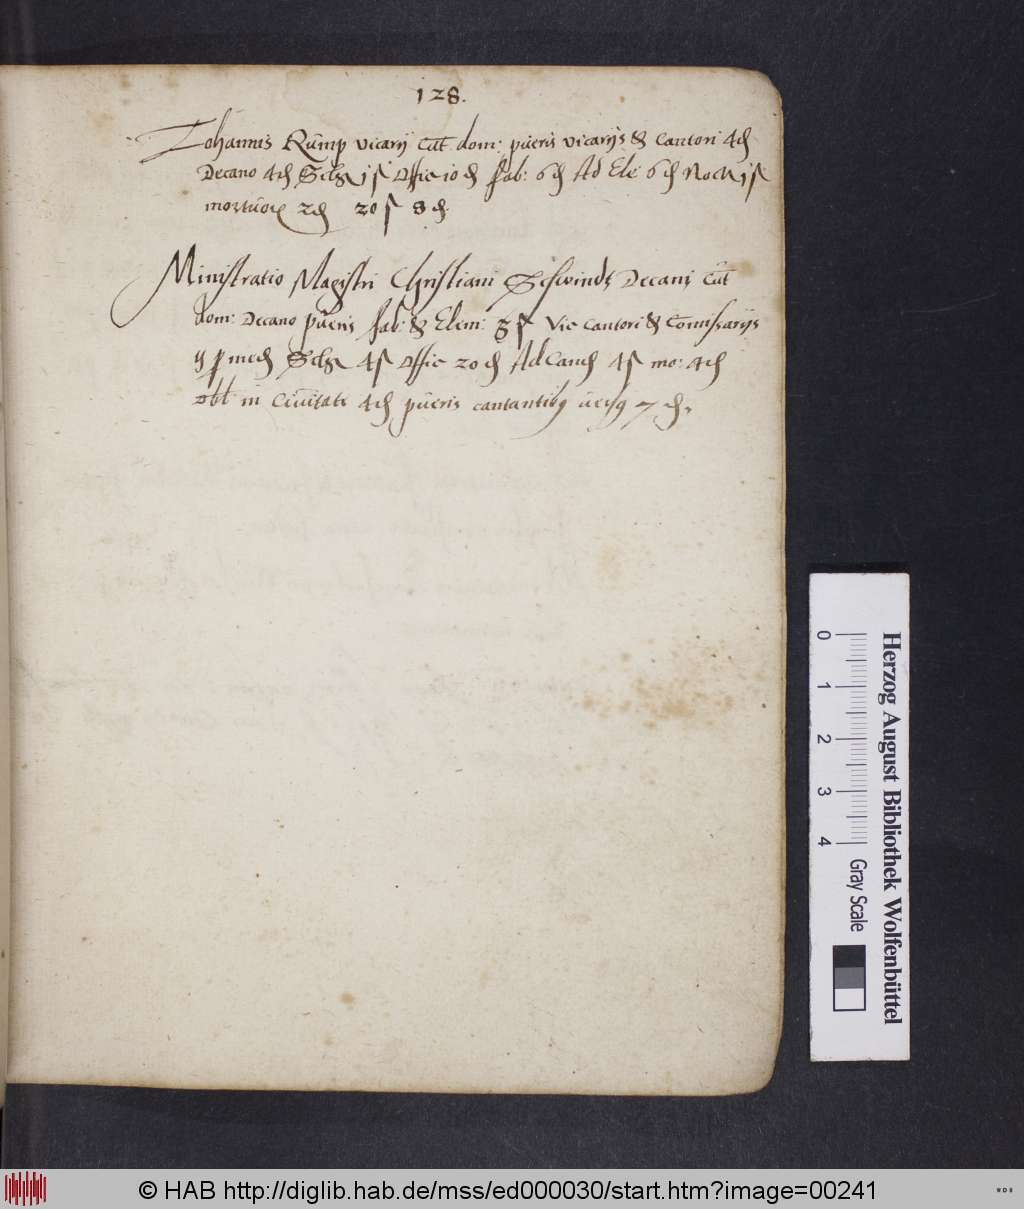 128.
Johannis Rump vicarij Cut dom: pueris vicarijs & Cantori 4 ₰
Decano 4 ₰ 1 ß Offic 10 ₰ fab: 6 ₰ Ad Ele 6 ₰ 1 ß
mortuor 2 ₰ 20 ß 8 ₰.
Ministratio Magistri Christiani Decani Cut
dom: Decano pueris fab: & Elem: 3 ß Vic Cantori & Comissarijs
4 ß Offic 20 ₰ Ad Cand 4 ß mo: 4 ₰
obl in Civitate 4 ₰ pueris cantantibus 7 ₰.
Herzog August Bibliothek Wolfenbüttel
0 1 2 3 4 Gray Scale
© HAB http://diglib.hab.de/mss/ed000030/start.htm?image=00241